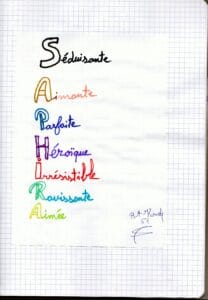 Séduisante
Aimante
Parfaite
Héroïque
Irrésistible
Ravissante
Aimée